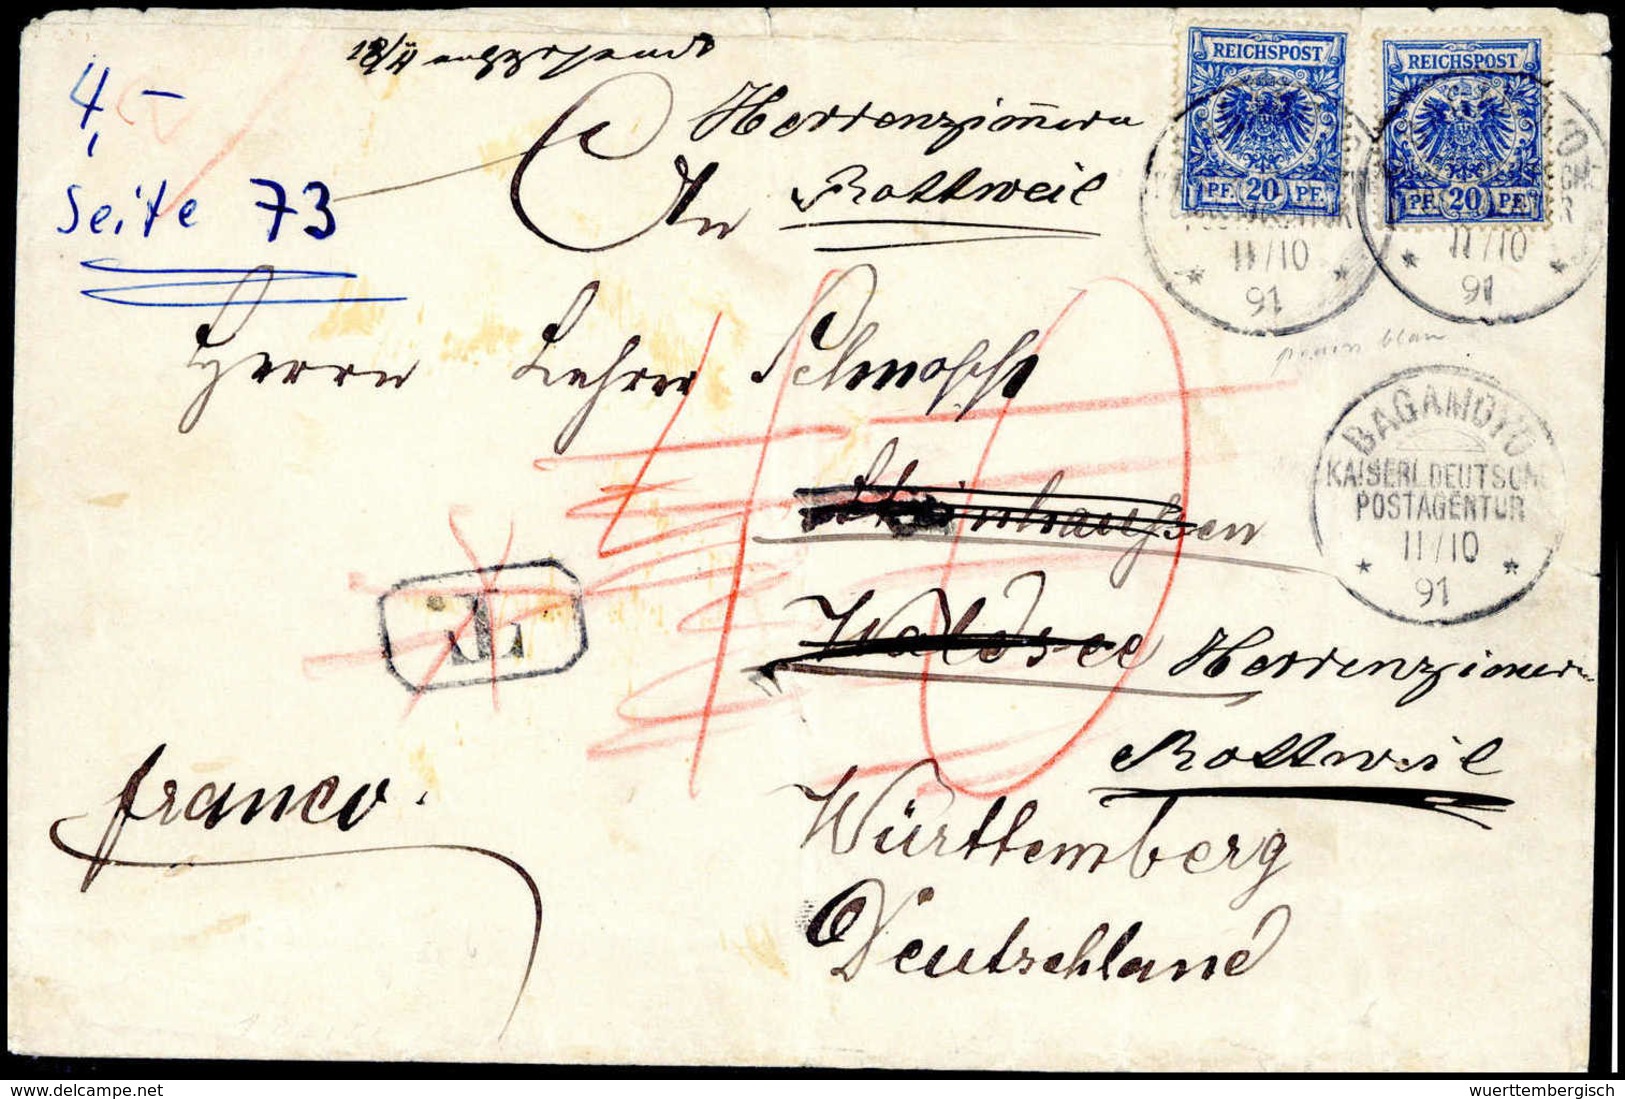 4,-
Seite 73
Herrenzimmern
An Rottweil
REICHSPOST
PF. 20 PF.
REICHSPOST
PF. 20 PF.
11/10
91
11/10
91
Herrn Lehrer
40
BAGAMOYO
KAISERL. DEUTSCHE
POSTAGENTUR
11/10
91
Steinhaussen
Waldsee Herrenzimmern
Rottweil
franco.
Württemberg
Deutschland
delcampe.net
wuerttembergisch